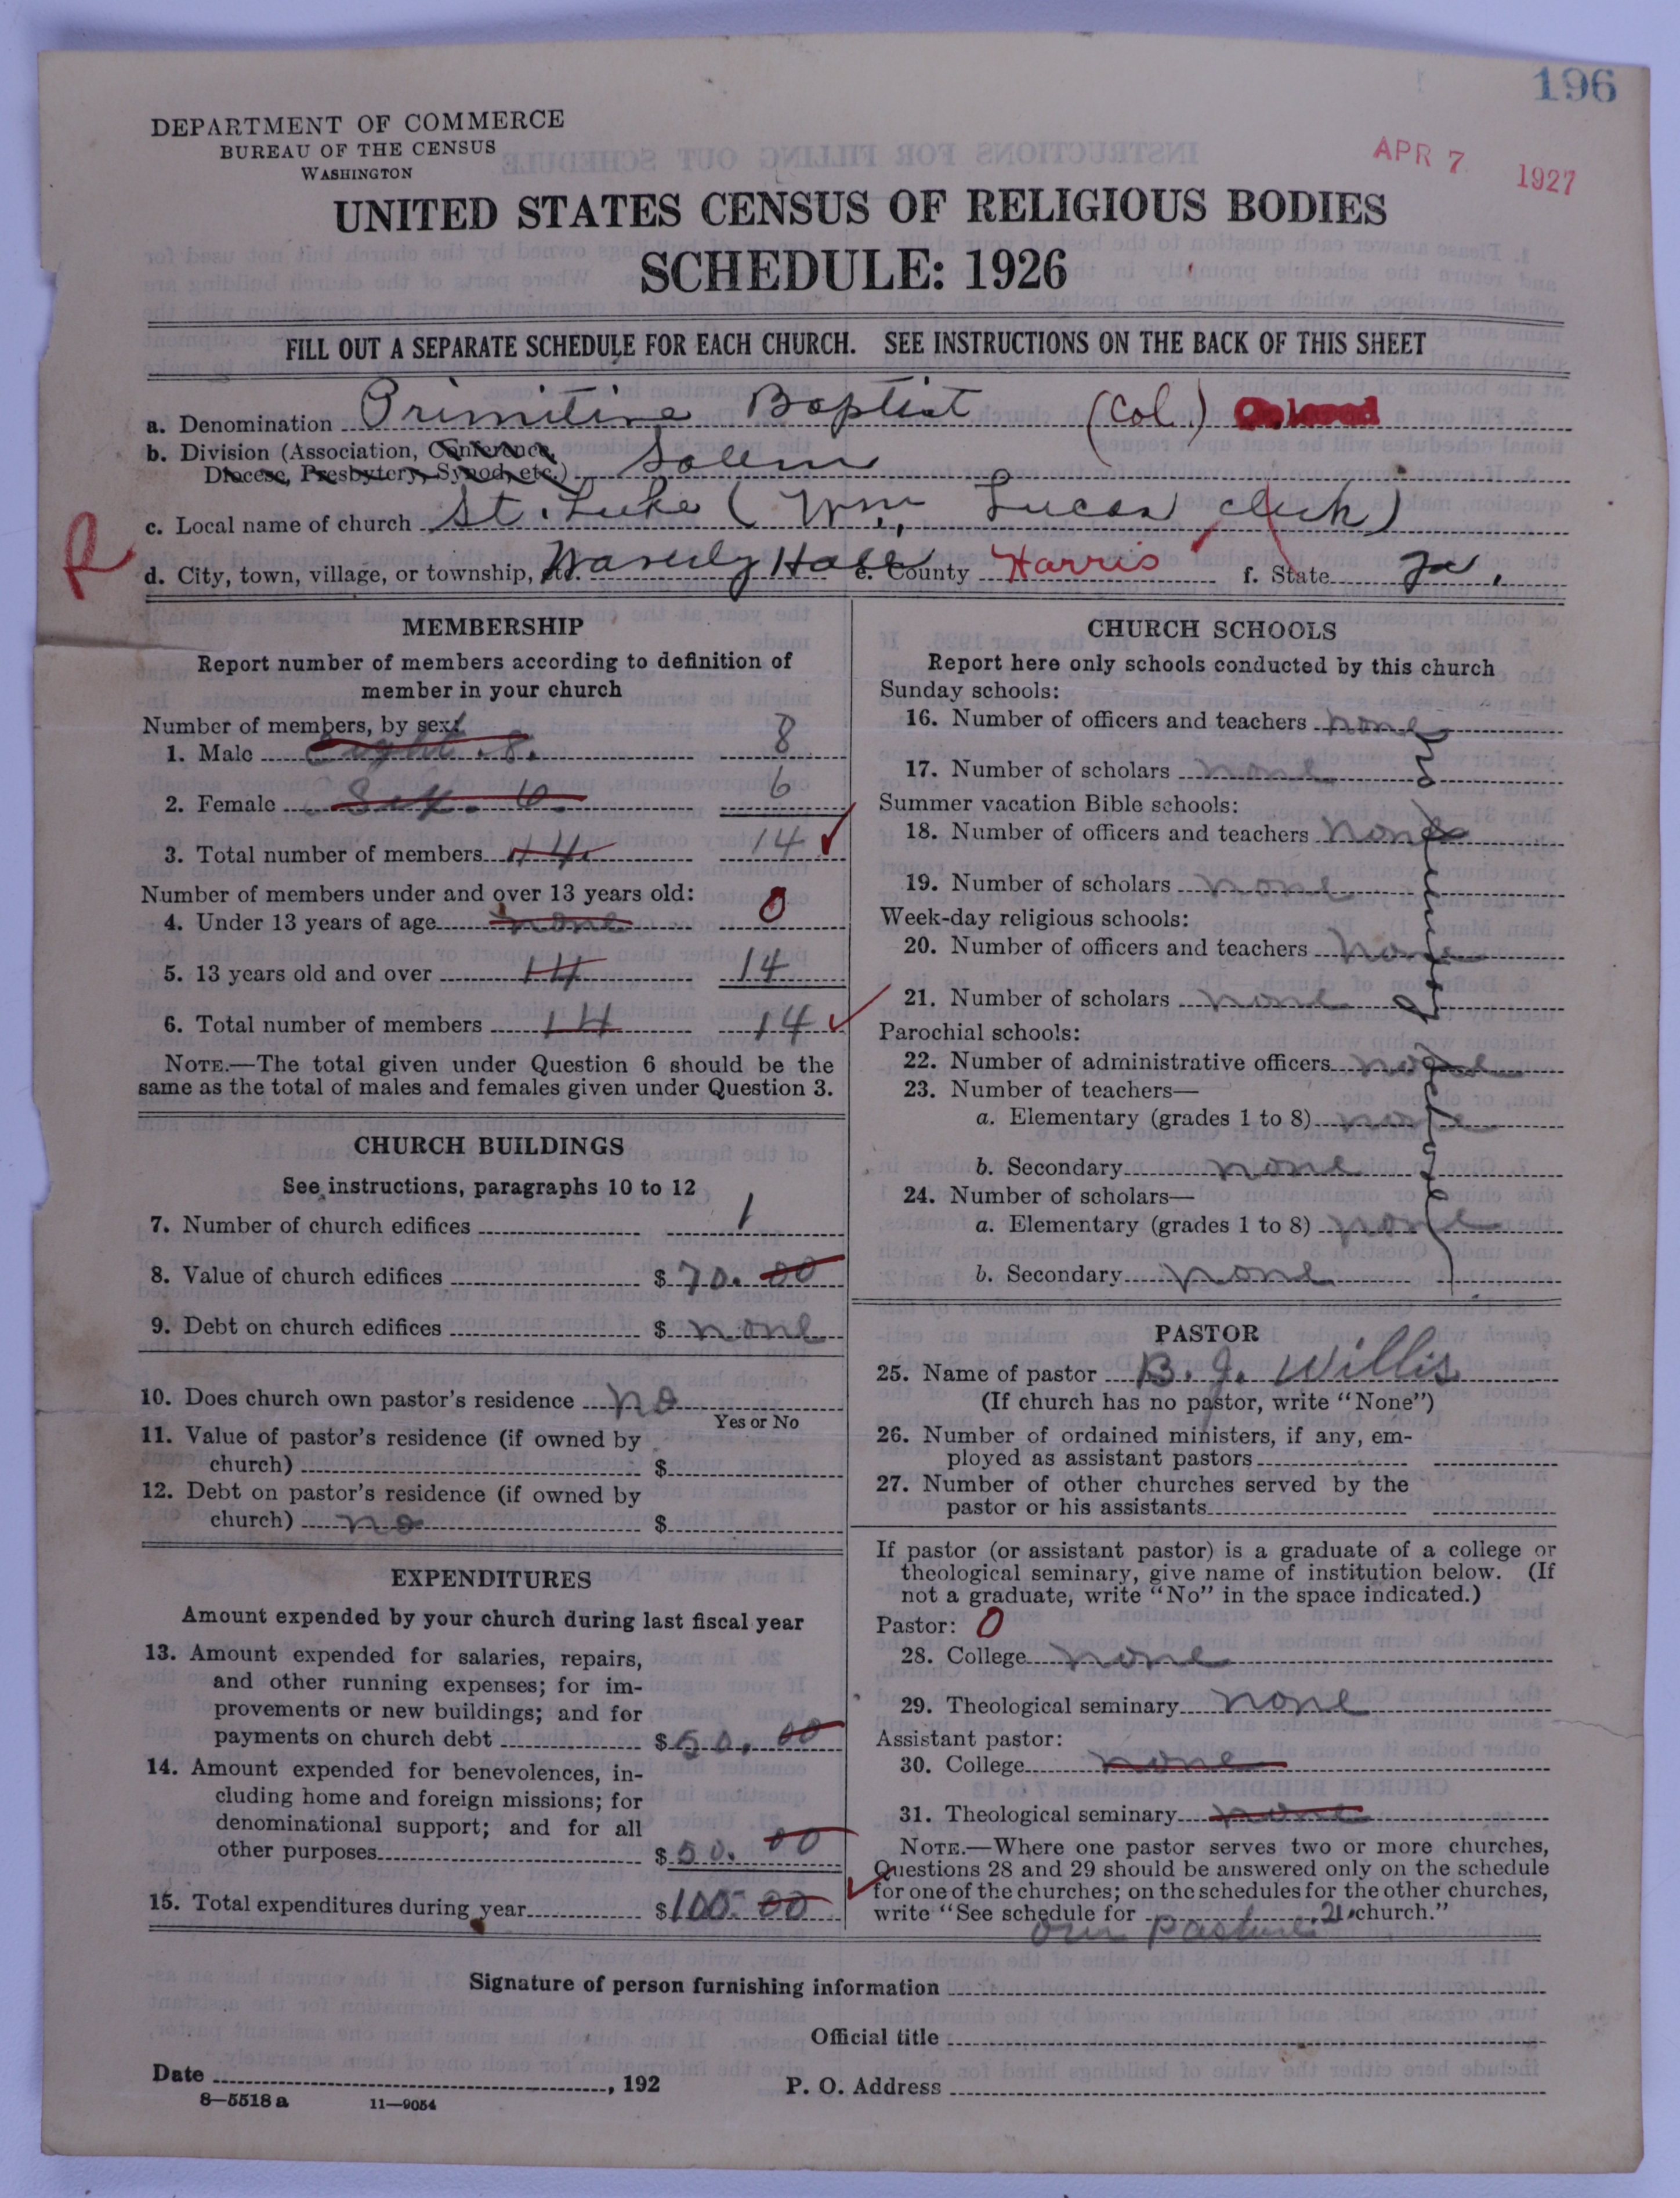 196
DEPARTMENT OF COMMERCE
BUREAU OF THE CENSUS
WASHINGTON
APR 7 1927
UNITED STATES CENSUS OF RELIGIOUS BODIES
SCHEDULE: 1926
FILL OUT A SEPARATE SCHEDULE FOR EACH CHURCH. SEE INSTRUCTIONS ON THE BACK OF THIS SHEET
a. Denomination Primitive Baptist (Col.) Colored
b. Division (Association, Conference,
Diocese, Presbytery, Synod, etc.) Salem
c. Local name of church St. Luke (Wm. Lucas clerk)
R
d. City, town, village, or township, etc. Waverly Hall e. County Harris f. State Ga.
MEMBERSHIP
Report number of members according to definition of
member in your church
Number of members, by sex:
1. Male eight. 8. 8
2. Female Six. 6. 6
3. Total number of members 14. 14
Number of members under and over 13 years old:
4. Under 13 years of age none 0
5. 13 years old and over 14 14
6. Total number of members 14 14
NOTE.—The total given under Question 6 should be the
same as the total of males and females given under Question 3.
CHURCH BUILDINGS
See instructions, paragraphs 10 to 12
7. Number of church edifices 1
8. Value of church edifices $ 70. 00
9. Debt on church edifices $ none
10. Does church own pastor's residence no
Yes or No
11. Value of pastor's residence (if owned by
church) $
12. Debt on pastor's residence (if owned by
church) no $
EXPENDITURES
Amount expended by your church during last fiscal year
13. Amount expended for salaries, repairs,
and other running expenses; for im-
provements or new buildings; and for
payments on church debt $ 50. 00
14. Amount expended for benevolences, in-
cluding home and foreign missions; for
denominational support; and for all
other purposes $ 50. 00
15. Total expenditures during year $ 100. 00
CHURCH SCHOOLS
Report here only schools conducted by this church
Sunday schools:
16. Number of officers and teachers none
17. Number of scholars none
Summer vacation Bible schools:
18. Number of officers and teachers none
19. Number of scholars none
Week-day religious schools:
20. Number of officers and teachers none
21. Number of scholars none
Parochial schools:
22. Number of administrative officers none
23. Number of teachers—
a. Elementary (grades 1 to 8) none
b. Secondary none
24. Number of scholars—
a. Elementary (grades 1 to 8) none
b. Secondary none
PASTOR
25. Name of pastor B. J. Willis
(If church has no pastor, write "None")
26. Number of ordained ministers, if any, em-
ployed as assistant pastors
27. Number of other churches served by the
pastor or his assistants
If pastor (or assistant pastor) is a graduate of a college or
theological seminary, give name of institution below. (If
not a graduate, write "No" in the space indicated.)
Pastor: 0
28. College none
29. Theological seminary none
Assistant pastor:
30. College none
31. Theological seminary none
NOTE.—Where one pastor serves two or more churches,
Questions 28 and 29 should be answered only on the schedule
for one of the churches; on the schedules for the other churches,
write "See schedule for church."
our
Signature of person furnishing information
Official title
Date , 192
P. O. Address
8—5518 a 11—9054